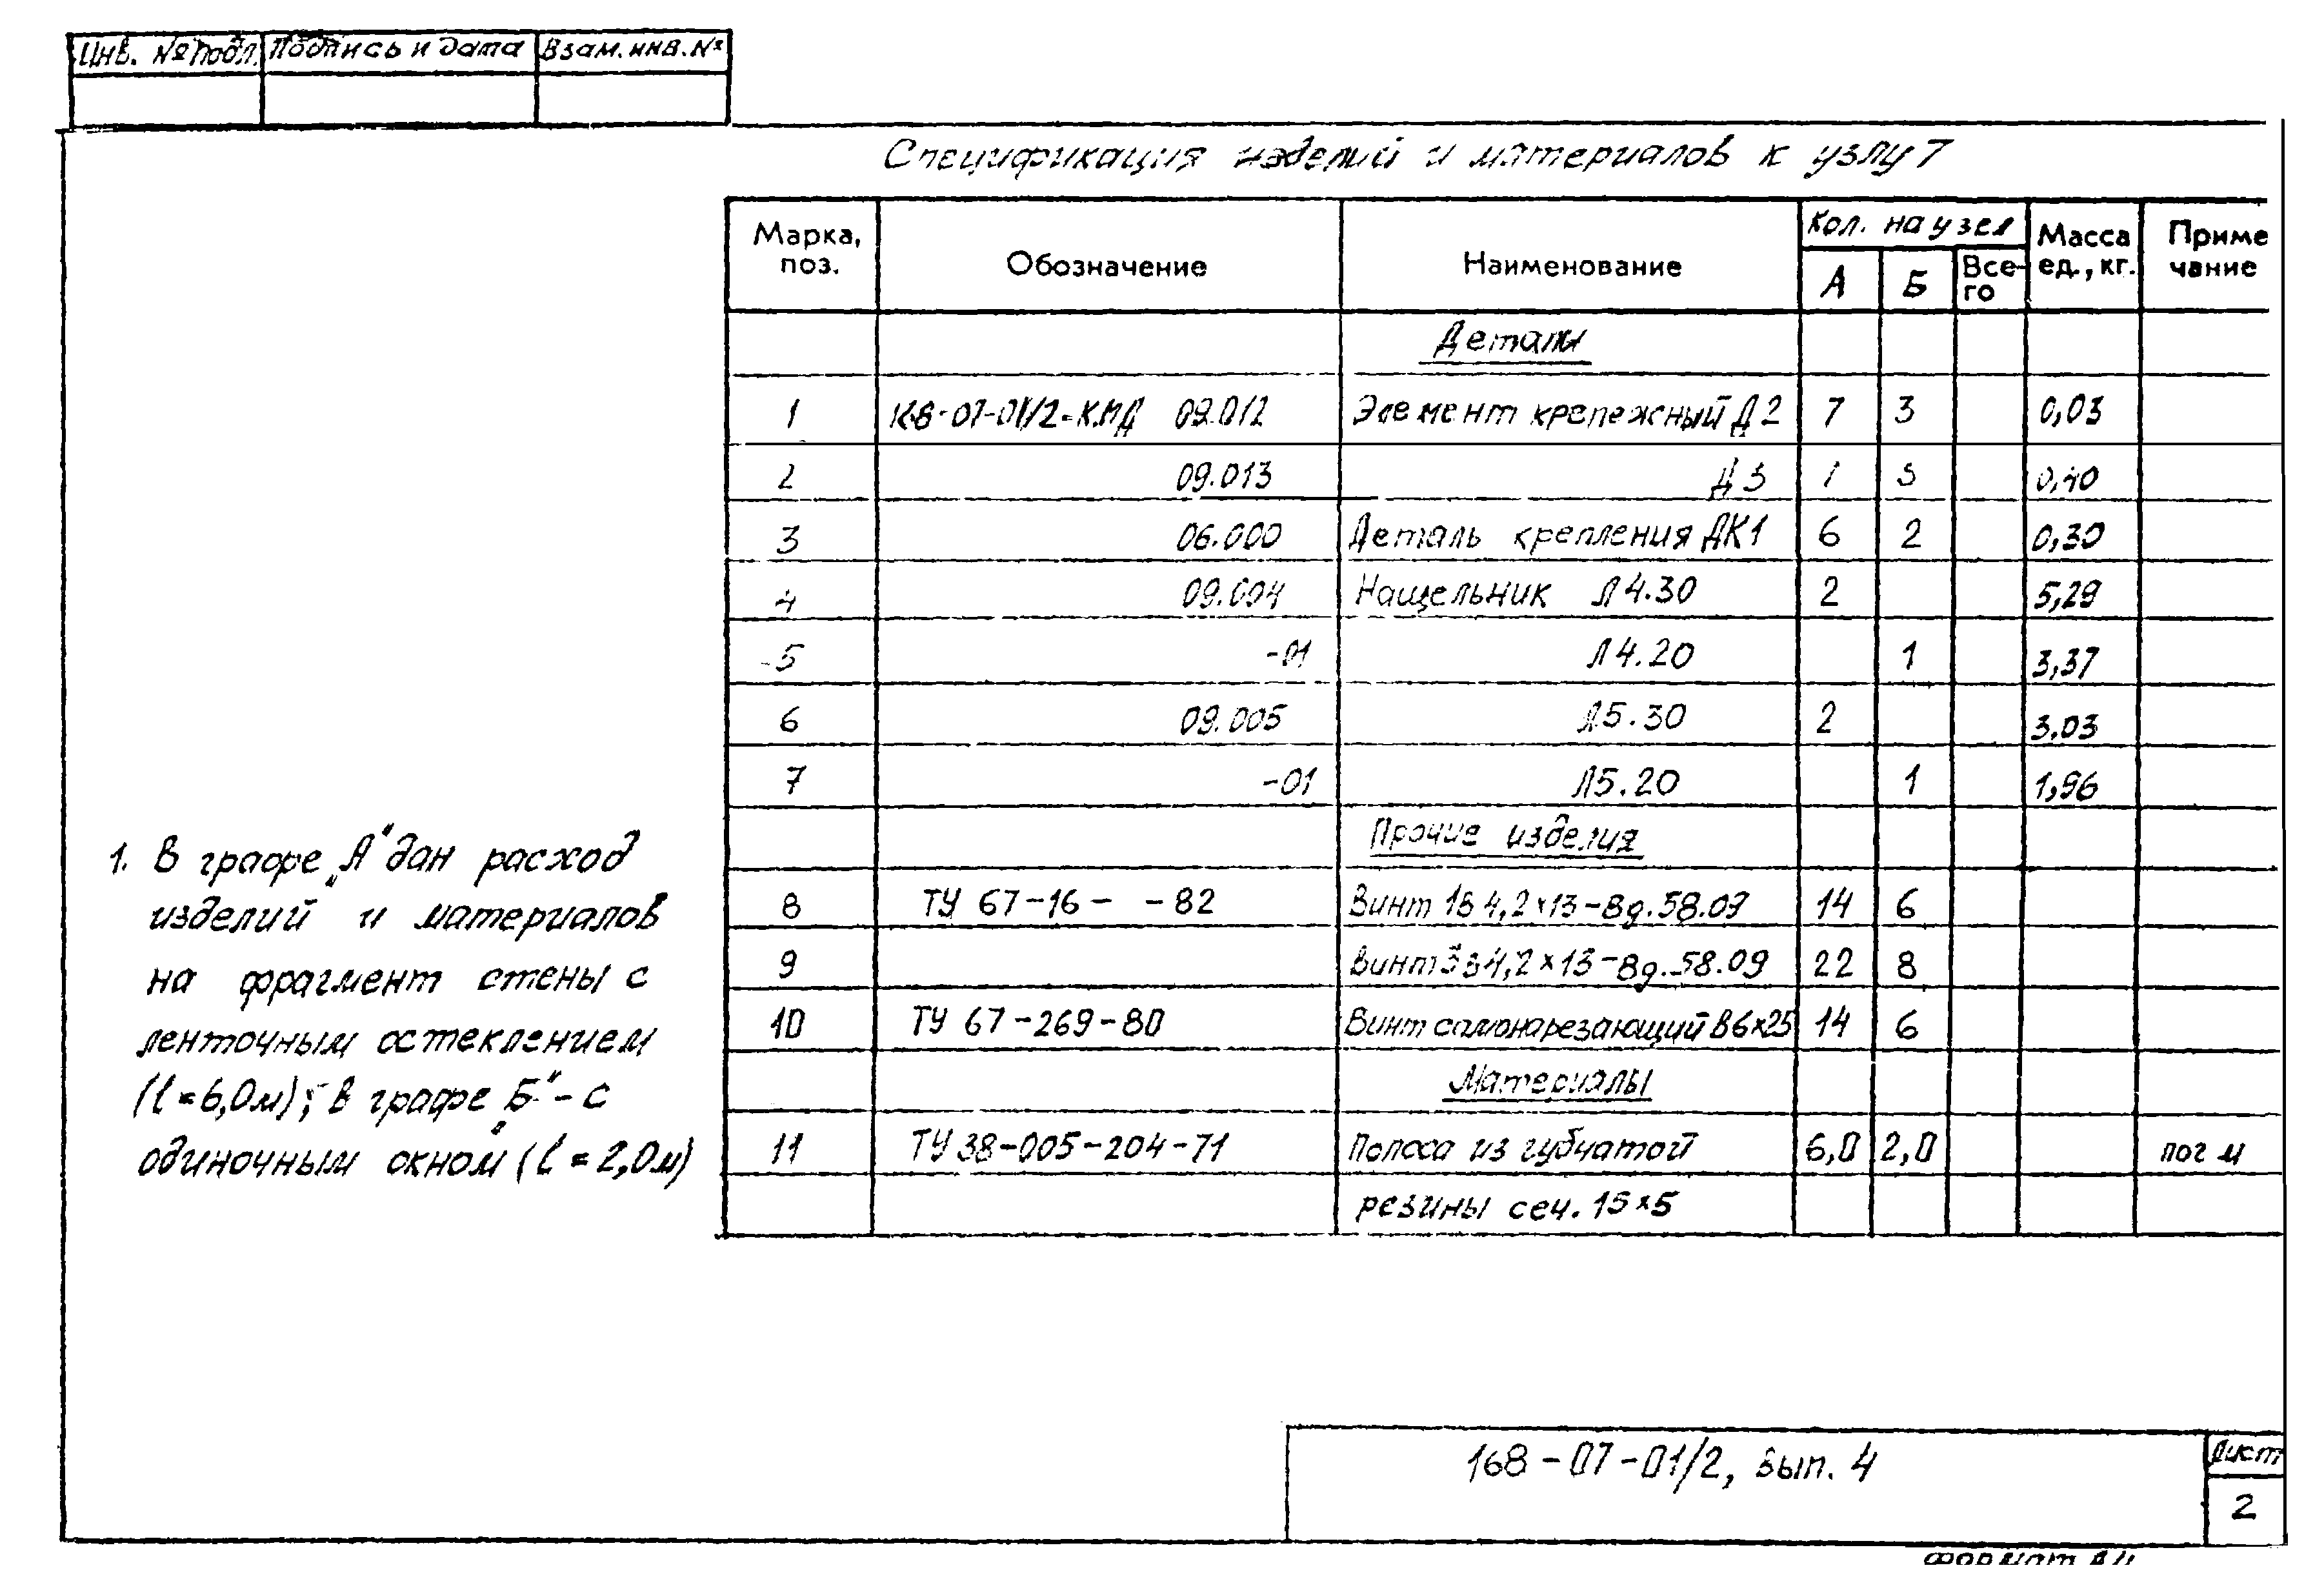 Инв. № подл. Подпись и дата Взам. инв. №
Спецификация изделий и материалов к узлу 7
Марка, поз. Обозначение Наименование Кол. на узел Масса ед., кг. Приме чание
А Б Все-го
Детали
1 168-07-01/2-КМД 09.012 Элемент крепежный Д2 7 3 0,03
2 09.013 Д3 1 3 0,40
3 06.000 Деталь крепления ДК1 6 2 0,30
4 09.004 Нащельник Л4.30 2 5,29
5 -01 Л4.20 1 3,37
6 09.005 Л5.30 2 3.03
7 -01 Л5.20 1 1,96
Прочие изделия
8 ТУ 67-16- -82 Винт 4,2×13-Вд.58.09 14 6
9 Винт 4,2×13-Вд.58.09 22 8
10 ТУ 67-269-80 Винт самонарезающий В6×25 14 6
Материалы
11 ТУ 38-005-204-71 Полоса из губчатой 6,0 2,0 пог м
резины сеч. 15×5
1. В графе „А" дан расход
изделий и материалов
на фрагмент стены с
ленточным остеклением
(l=6,0м); в графе „Б" - с
одиночным окном (l=2,0м)
168-07-01/2, вып. 4
Лист
2
Формат